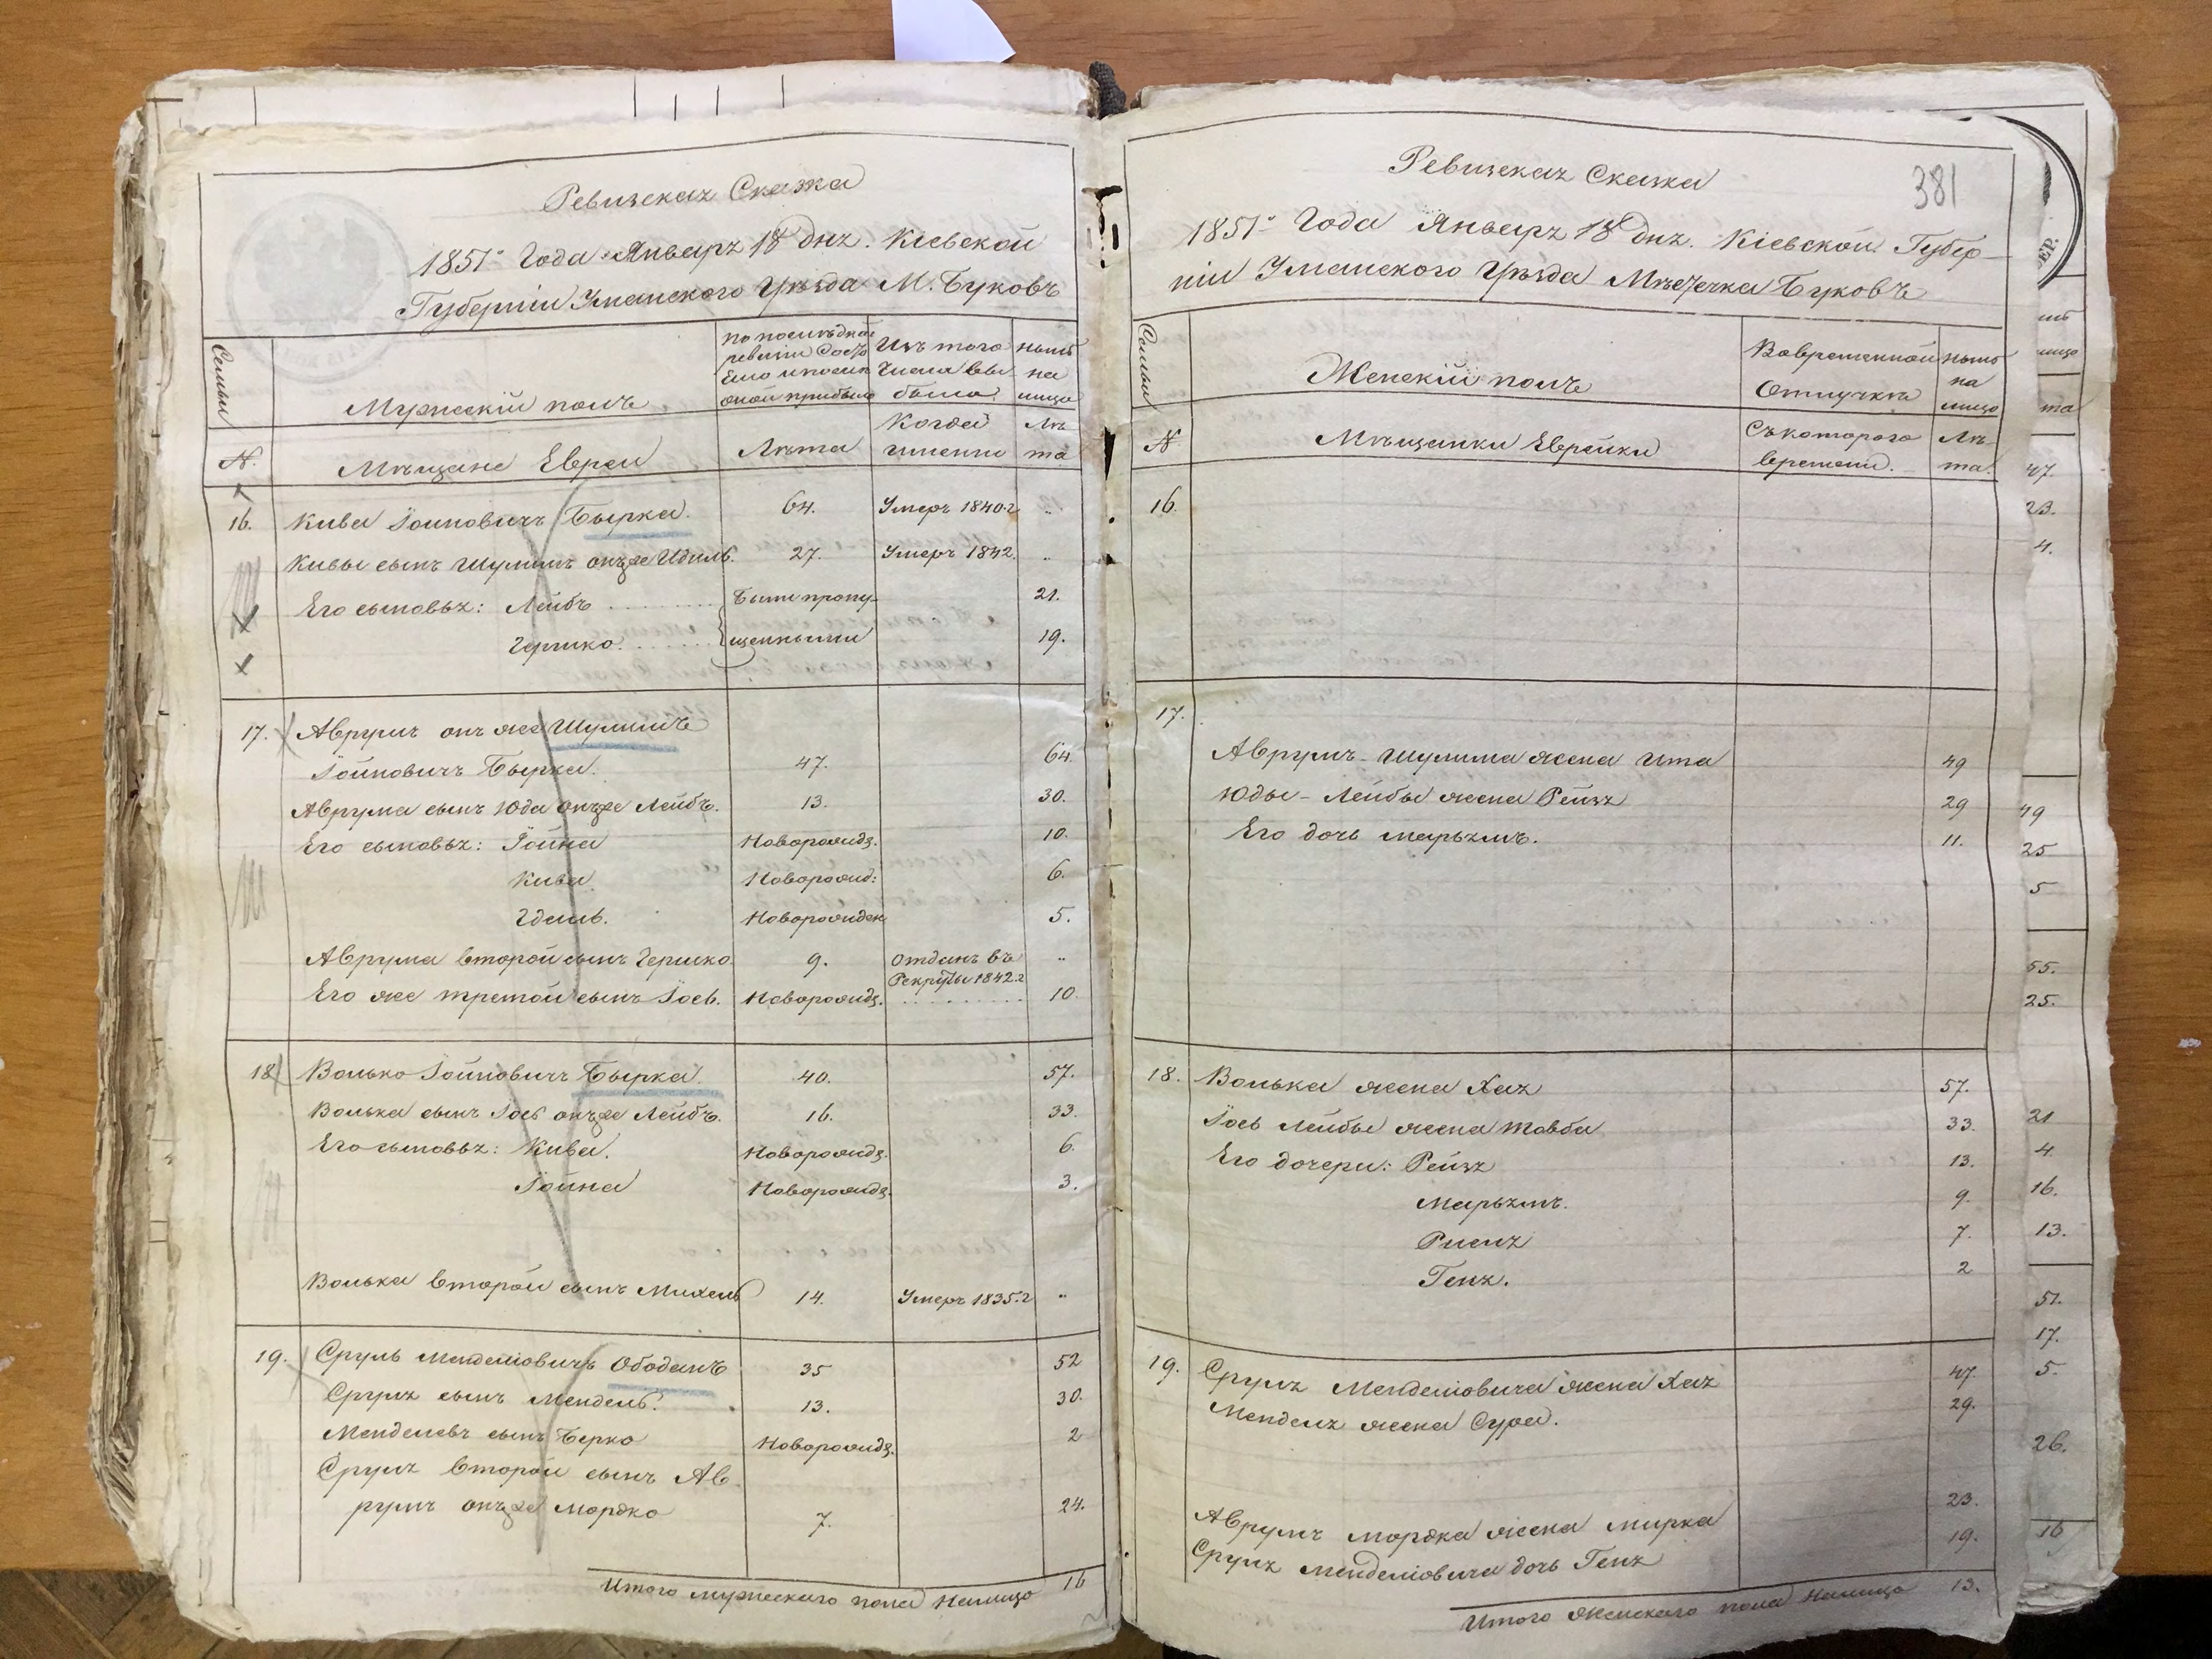 Ревизская Сказка
1851го Года Января 18 дня. Кіевской
Губерніи Уманского Уѣзда М. Буковъ
Семьи
Мужескій полъ
по послѣдней
ревизіи Состо
яло и послѣ
оной прибыло
Изъ того
Числа вы
было.
нынѣ
на
лицо
N.
Мѣщане Евреи
Лѣта
Когда
именно
Лѣ
та
16. Кива Іойновичъ Бырка. 64. Умеръ 1840 г. „
Кивы сынъ Шулимъ онъ же Идиль. 27. Умеръ 1842. „
Его сыновья: Лейбъ Были пропу- 21.
Гершко. щенными 19.
17. Аврумъ онъ же Шулимъ
Іойновичъ Бырка. 47. 64.
Аврума сынъ Юда онъ же Лейбъ. 13. 30.
Его сыновья: Іойна Новорожд. 10.
Кива Новорожд: 6.
Гдаль. Новорожден 5.
Аврума второй сынъ Гершко 9. отданъ въ „
Рекруты 1842 г
Его же третой сынъ Іось. Новорожд. 10.
18 Волько Іойновичъ Бырка. 40. 57.
Волька сынъ Іось онъ же Лейбъ. 16. 33.
Его сыновья: Кива. Новорожд. 6.
Іойна Новорожд. 3.
Волька второй сынъ Михель 14. Умеръ 1835 г „
19. Сруль Менделіовичъ Ободанъ 35 52
Сруля сынъ Мендель. 13. 30.
Менделевъ сынъ Берко Новорожд. 2
Сруля второй сынъ Ав
румъ онъ же Мордко 7. 24.
Итого мужескаго пола Налицо 16
Ревизская Сказка
381
1851го Года Января 18 дня. Кіевской Губер-
ніи Уманского Уѣзда Мѣстечка Буковъ
Семьи
Женскій полъ
Вовременной
Отлучкѣ
нынѣ
на
лицо
N
Мѣщанки Еврейки
Съ котораго
времени.
Лѣ
та.
16.
17.
Аврумъ-Шулима жена Ита 49
Юды-Лейбы жена Рейзя 29
Его дочь Марьямъ. 11.
18. Волька жена Хая 57.
Іось Лейбы жена Товба 33.
Его дочери: Рейзя 13.
Марьямъ. 9.
Рисля 7.
Геня. 2
19. Сруля Менделіовича жена Хая 47.
Менделя жена Сура. 29.
Аврумъ Мордка жена Мирка 23.
Сруля Менделіовича дочь Геня 19.
Итого женскаго пола Налицо 13.
та
47.
23.
4.
49
25
5
55.
25.
21
4.
16.
13.
51.
17.
5.
26.
16